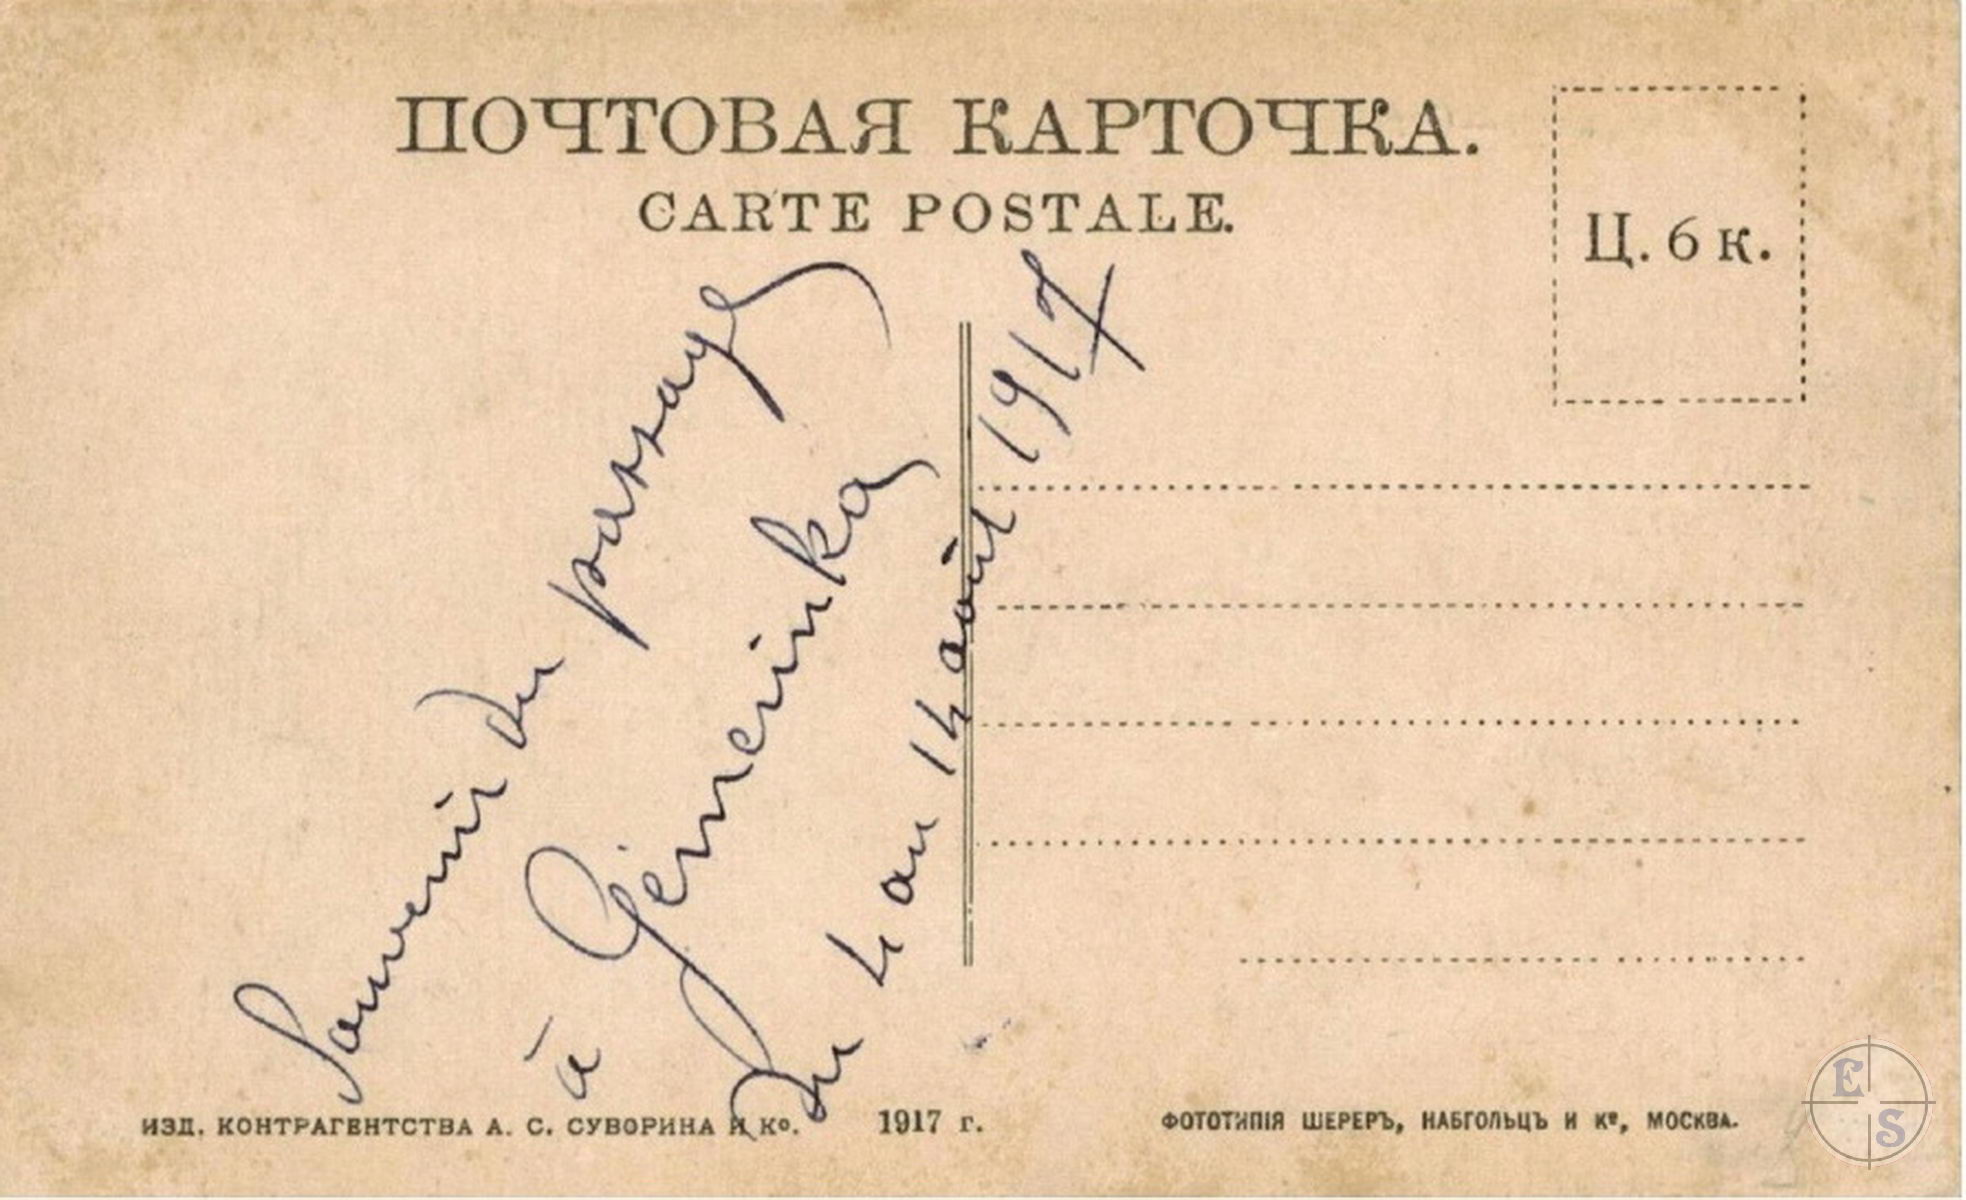 ПОЧТОВАЯ КАРТОЧКА.
CARTE POSTALE.
Ц. 6 к.
Souvenir du passage
à Gémerinka
du 4 au 14 août 1917
ИЗД. КОНТРАГЕНТСТВА А. С. СУВОРИНА И Ко.
1917 г.
ФОТОТИПІЯ ШЕРЕРЪ, НАБГОЛЬЦЪ И Ко, МОСКВА.
E
S